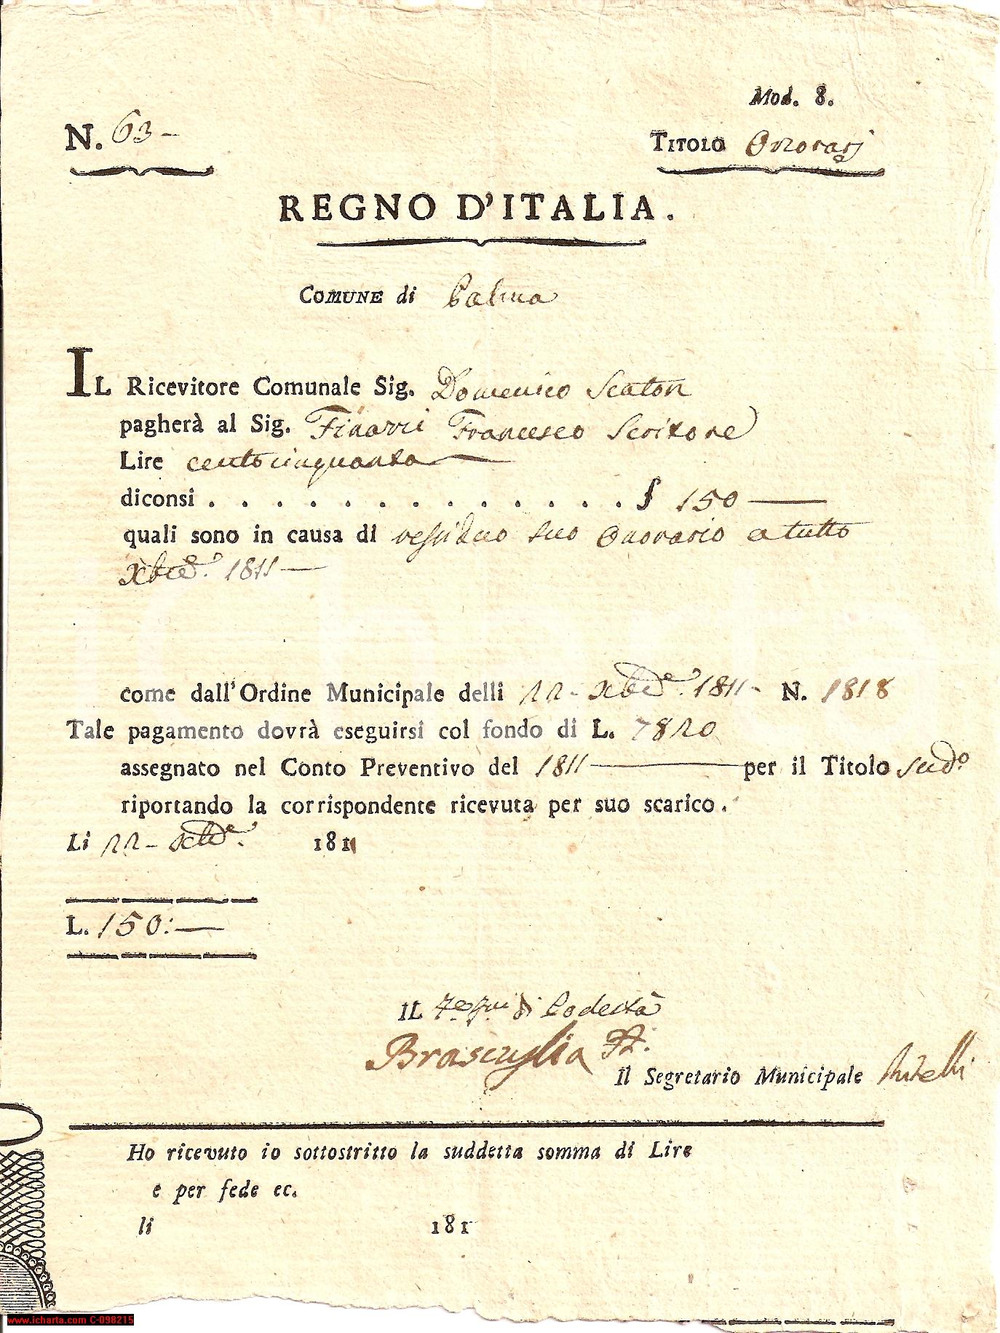 Mod. 8.
N. 63 -
TITOLO Onorarj
REGNO D'ITALIA.
COMUNE di Palma
IL Ricevitore Comunale Sig. Domenico Scaton
pagherà al Sig. Finazzi Francesco Scritore
Lire centocinquanta
diconsi . . . . . . . . . . . . . . 150
quali sono in causa di residuo suo Onorario a tutto
Xbre. 1811
come dall'Ordine Municipale delli 22 - Xbre. 1811 - N. 1818
Tale pagamento dovrà eseguirsi col fondo di L. 7820
assegnato nel Conto Preventivo del 1811 per il Titolo sudo
riportando la corrispondente ricevuta per suo scarico.
Li 22 - Xbre. 1811
L. 150:
IL di Podestà
Brasuglia
Il Segretario Municipale
Ho ricevuto io sottostritto la suddetta somma di Lire
e per fede ec.
li 181
www.icharta.com C-098215